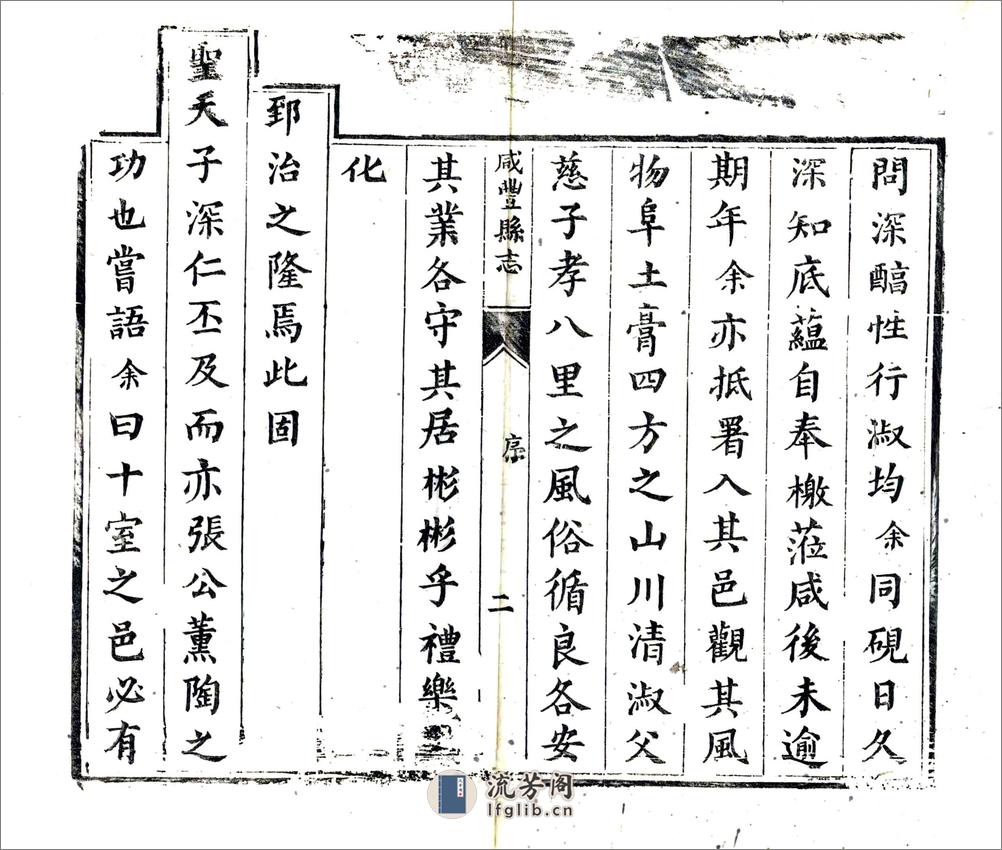 問深醕性行淑均余同硯日久
深知底蘊自奉檄蒞咸後未逾
期年余亦抵署入其邑觀其風
物阜土膏四方之山川清淑父
慈子孝八里之風俗循良各安
咸豐縣志 序 二
其業各守其居彬彬乎禮樂
化
郅治之隆焉此固
聖天子深仁丕及而亦張公薰陶之
功也嘗語余曰十室之邑必有
流芳阁
lfglib.cn